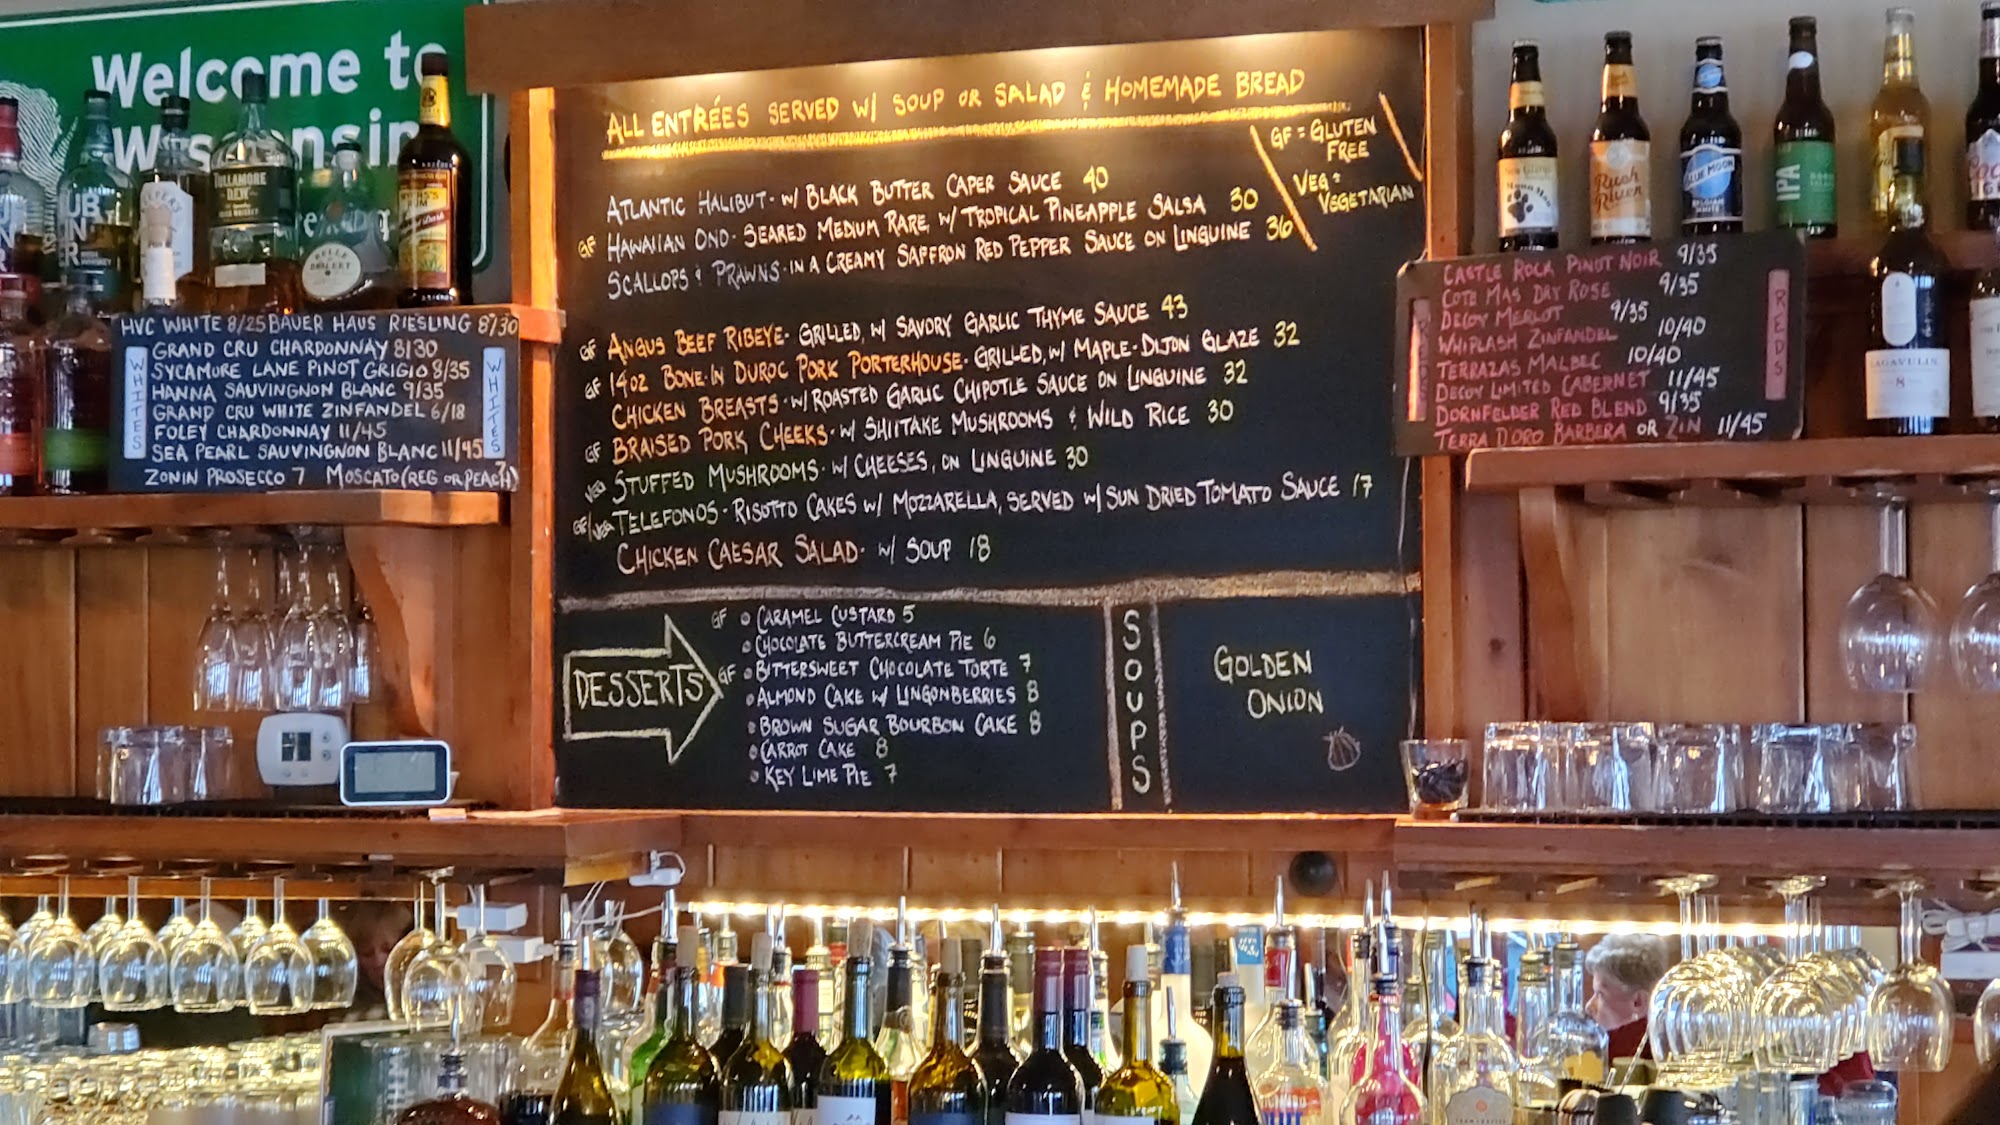 Welcome to
Wisconsin
TULLAMORE
DEW
ALL ENTRÉES SERVED W/ SOUP OR SALAD & HOMEMADE BREAD
GF = GLUTEN
FREE
VEG =
VEGETARIAN
ATLANTIC HALIBUT - W/ BLACK BUTTER CAPER SAUCE 40
GF HAWAIIAN ONO - SEARED MEDIUM RARE, W/ TROPICAL PINEAPPLE SALSA 30
SCALLOPS & PRAWNS - IN A CREAMY SAFFRON RED PEPPER SAUCE ON LINGUINE 36
GF ANGUS BEEF RIBEYE - GRILLED, W/ SAVORY GARLIC THYME SAUCE 43
GF 14OZ BONE-IN DUROC PORK PORTERHOUSE - GRILLED, W/ MAPLE-DIJON GLAZE 32
CHICKEN BREASTS - W/ ROASTED GARLIC CHIPOTLE SAUCE ON LINGUINE 32
GF BRAISED PORK CHEEKS - W/ SHIITAKE MUSHROOMS & WILD RICE 30
VEG STUFFED MUSHROOMS - W/ CHEESES, ON LINGUINE 30
GF/VEG TELEFONOS - RISOTTO CAKES W/ MOZZARELLA, SERVED W/ SUN DRIED TOMATO SAUCE 17
CHICKEN CAESAR SALAD - W/ SOUP 18
DESSERTS
GF CARAMEL CUSTARD 5
CHOCOLATE BUTTERCREAM PIE 6
GF BITTERSWEET CHOCOLATE TORTE 7
ALMOND CAKE W/ LINGONBERRIES 8
BROWN SUGAR BOURBON CAKE 8
CARROT CAKE 8
KEY LIME PIE 7
SOUPS
GOLDEN
ONION
HVC WHITE 8/25 BAUER HAUS RIESLING 8/30
GRAND CRU CHARDONNAY 8/30
SYCAMORE LANE PINOT GRIGIO 8/35
HANNA SAUVIGNON BLANC 9/35
GRAND CRU WHITE ZINFANDEL 6/18
FOLEY CHARDONNAY 11/45
SEA PEARL SAUVIGNON BLANC 11/45
ZONIN PROSECCO 7 MOSCATO (REG OR PEACH) 7
WHITES
WHITES
CASTLE ROCK PINOT NOIR 9/35
COTE MAS DRY ROSE 9/35
DECOY MERLOT 9/35
WHIPLASH ZINFANDEL 10/40
TERRAZAS MALBEC 10/40
DECOY LIMITED CABERNET 11/45
DORNFELDER RED BLEND 9/35
TERRA D'ORO BARBERA OR ZIN 11/45
REDS
REDS
Rush
River
BLUE MOON
BELGIAN
WHITE
IPA
LAGAVULIN
8